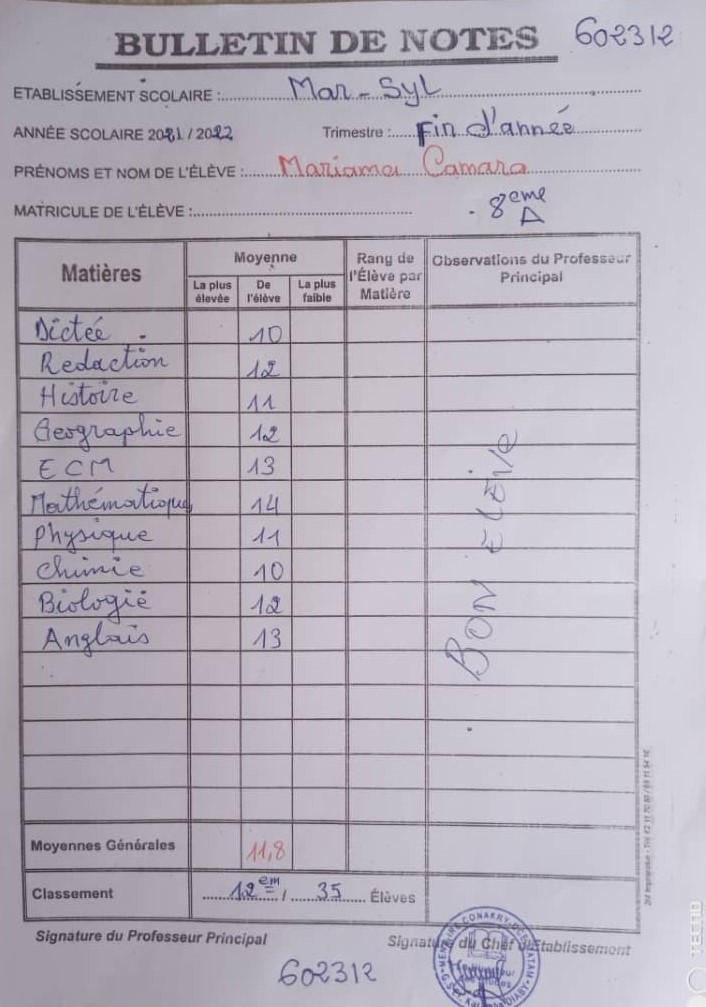 BULLETIN DE NOTES 602312
ETABLISSEMENT SCOLAIRE : Mar-Syl
ANNÉE SCOLAIRE 2021 / 2022 Trimestre : Fin d'année
PRÉNOMS ET NOM DE L'ÉLÈVE : Mariama Camara
MATRICULE DE L'ÉLÈVE : 8eme A
Matières Moyenne Rang de l'Élève par Matière Observations du Professeur Principal
La plus élevée De l'élève La plus faible
Dictée 10
Redaction 12
Histoire 11
Geographie 12
ECM 13
Mathématiques 14
Physique 11
Chimie 10
Biologie 12
Anglais 13
BON ELÈVE
Moyennes Générales 11,8
Classement 12em / 35 Élèves
Signature du Professeur Principal Signature du Chef d'Etablissement
602312
TECNO